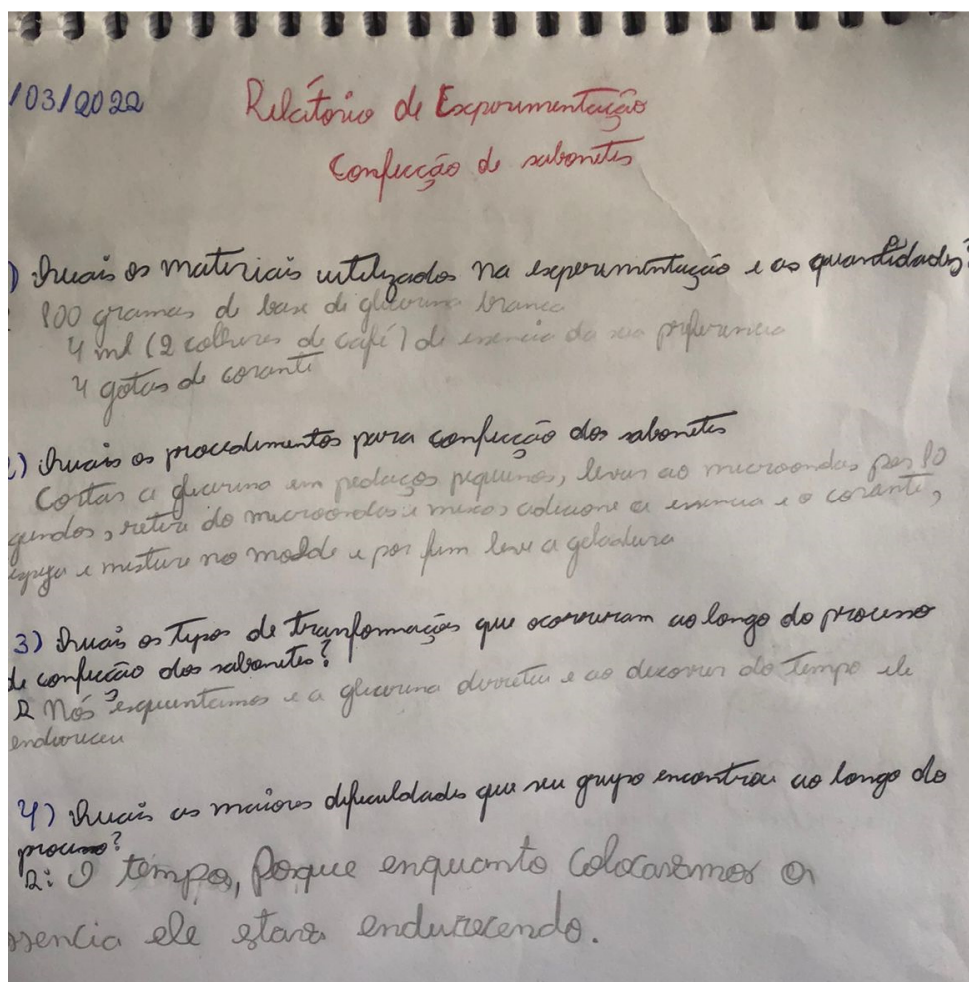 /03/2022 Relátorio de Experimentação
Confecção de sabonetes
) Quais os materiais utilizados na experimentação e as quantidades?
100 gramas de base de glicerina branca
4 ml (2 colheres de café) de essencia da sua preferencia
4 gotas de corante
) Quais os procedimentos para confecção dos sabonetes
Cortar a glicerina em pedaços pequenos, levar ao microondas por 10
gundos, retire do microondas e mexa, adicione a essencia e o corante,
e misture no molde e por fim leve a geladura
3) Quais os tipos de tranformações que ocorreram ao longo do processo
de confecção dos sabonetes?
R Nós esquentamos e a glicerina derreteu e ao decorrer do tempo ele
endureceu
4) Quais as maiores dificuldades que seu grupo encontrou ao longo do
processo?
R: O tempo, Porque enquanto colocavamos a
ssencia ele estava endurecendo.